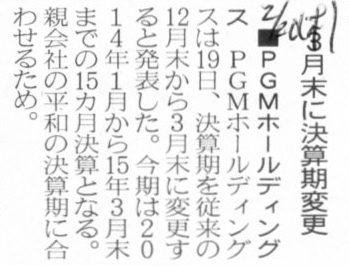 3月末に決算期変更
■PGMホールディング
ス PGMホールディング
スは19日、決算期を従来の
12月末から3月末に変更す
ると発表した。今期は20
14年1月から15年3月末
までの15カ月決算となる。
親会社の平和の決算期に合
わせるため。